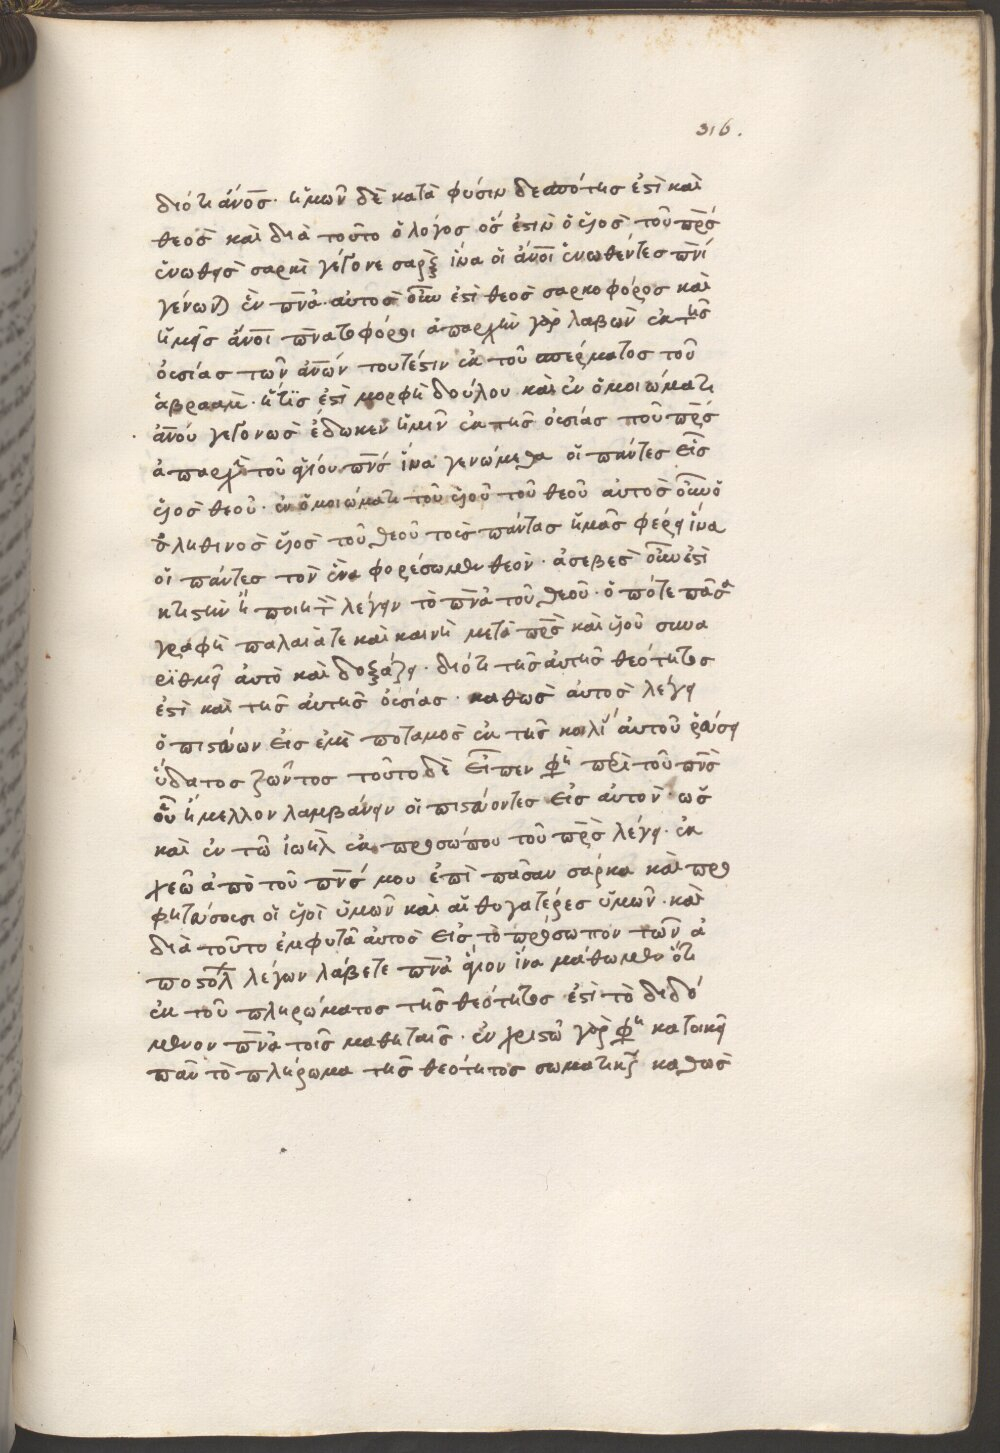 316.
διότι ἄνος̅· ἡμῶν δὲ κατὰ φύσιν δεσπότης ἐστὶ καὶ
θεὸς καὶ διὰ τοῦτο ὁ λόγος ὅς ἐστιν ὁ υἱὸς τοῦ πρ̅ς
ἑνωθῆς σαρκὶ γέγονε σαρξ ἵνα οἱ ἄνοι̅ ἑνωθέντες πν̅ι
γένωνται ἓν πν̅α· αὐτὸς οὖν ἐστὶ θεὸς σαρκοφόρος καὶ
ἡμεῖς ἄνοι̅ πν̅ατοφόροι ἀπαρχὴν γὰρ λαβὼν ἐκ τῆς
οὐσίας τῶν ἀν̅ων τουτέστιν ἐκ τοῦ σπέρματος τοῦ
ἁβραὰμ· ἥτις ἐστὶ μορφὴ δούλου καὶ ἐν ὁμοιώματι
ἀν̅ου γεγονὼς ἔδωκεν ἡμῖν ἐκ τῆς οὐσίας τοῦ πρ̅ς
ἀπαρχὴν τοῦ ἁγίου πν̅ς ἵνα γενώμεθα οἱ πάντες εἷς
υἱὸς θεοῦ· ἐν ὁμοιώματι τοῦ υἱοῦ τοῦ θεοῦ αὐτὸς οὖν ὁ
ἀληθινὸς υἱὸς τοῦ θεοῦ τοὶς πάντας ἡμᾶς φέρει ἵνα
οἱ πάντες τὸν ἕνα φορέσωμεν θεὸν· ἀσεβὲς οὖν ἐστὶ
κτιστὴν ἢ ποιητ λέγειν τὸ πν̅α τοῦ θεοῦ· ὁπότε πᾶσα
γραφὴ παλαιάτε καὶ καινὴ μετὰ πρ̅ς καὶ υἱοῦ συνα
ριθμεῖ αὐτὸ καὶ δοξάζει· διότι τῆς αὐτῆς θεότητος
ἐστὶ καὶ τῆς αὐτῆς οὐσίας· καθὼς αὐτὸς λέγει
ὁ πιστεύων εἰς ἐμὲ ποταμοὶ ἐκ τῆς κοιλί αὐτοῦ ῥεύσει
ὕδατος ζῶντος τοῦτο δὲ εἶπεν φη περὶ τοῦ πν̅ς
οὗ ἤμελλον λαμβάνειν οἱ πιστεύοντες εἰς αὐτὸν· ὡς
καὶ ἐν τῶ ἰωὴλ ἐκ προσώπου τοῦ πρ̅ς λέγει· ἐκ
χεῶ ἀπὸ τοῦ πν̅ς μου ἐπὶ πᾶσαν σάρκα καὶ προ
φητεύσουσι οἱ υἱοὶ ὑμῶν καὶ αἱ θυγατέρες ὑμῶν· καὶ
διὰ τοῦτο ἐμφυσᾶ αὐτὸς εἰς τὸ πρόσωπον τῶν ἀ
ποστόλ λέγων λάβετε πν̅α ἅγιον ἵνα μάθωμεν ὅτι
ἐκ τοῦ πληρώματος τῆς θεότητος ἐστὶ τὸ διδό
μενον πν̅α τοῖς μαθηταῖς· ἐν χριστῶ γὰρ φη κατοικεῖ
πᾶν τὸ πλήρωμα τῆς θεότητος σωματικῶς καθὼς